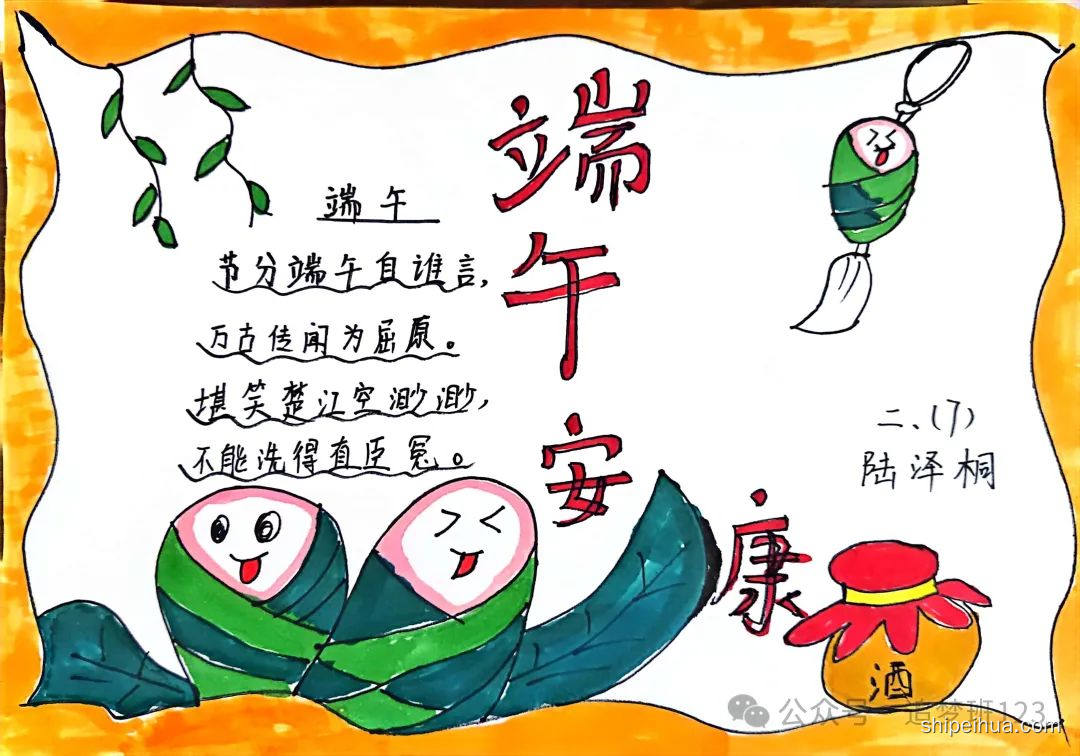 端午安康
端午
节分端午自谁言，
万古传闻为屈原。
堪笑楚江空渺渺，
不能洗得直臣冤。
二、(7)
陆泽桐
酒
公众号 追梦班123
shipeihua.com